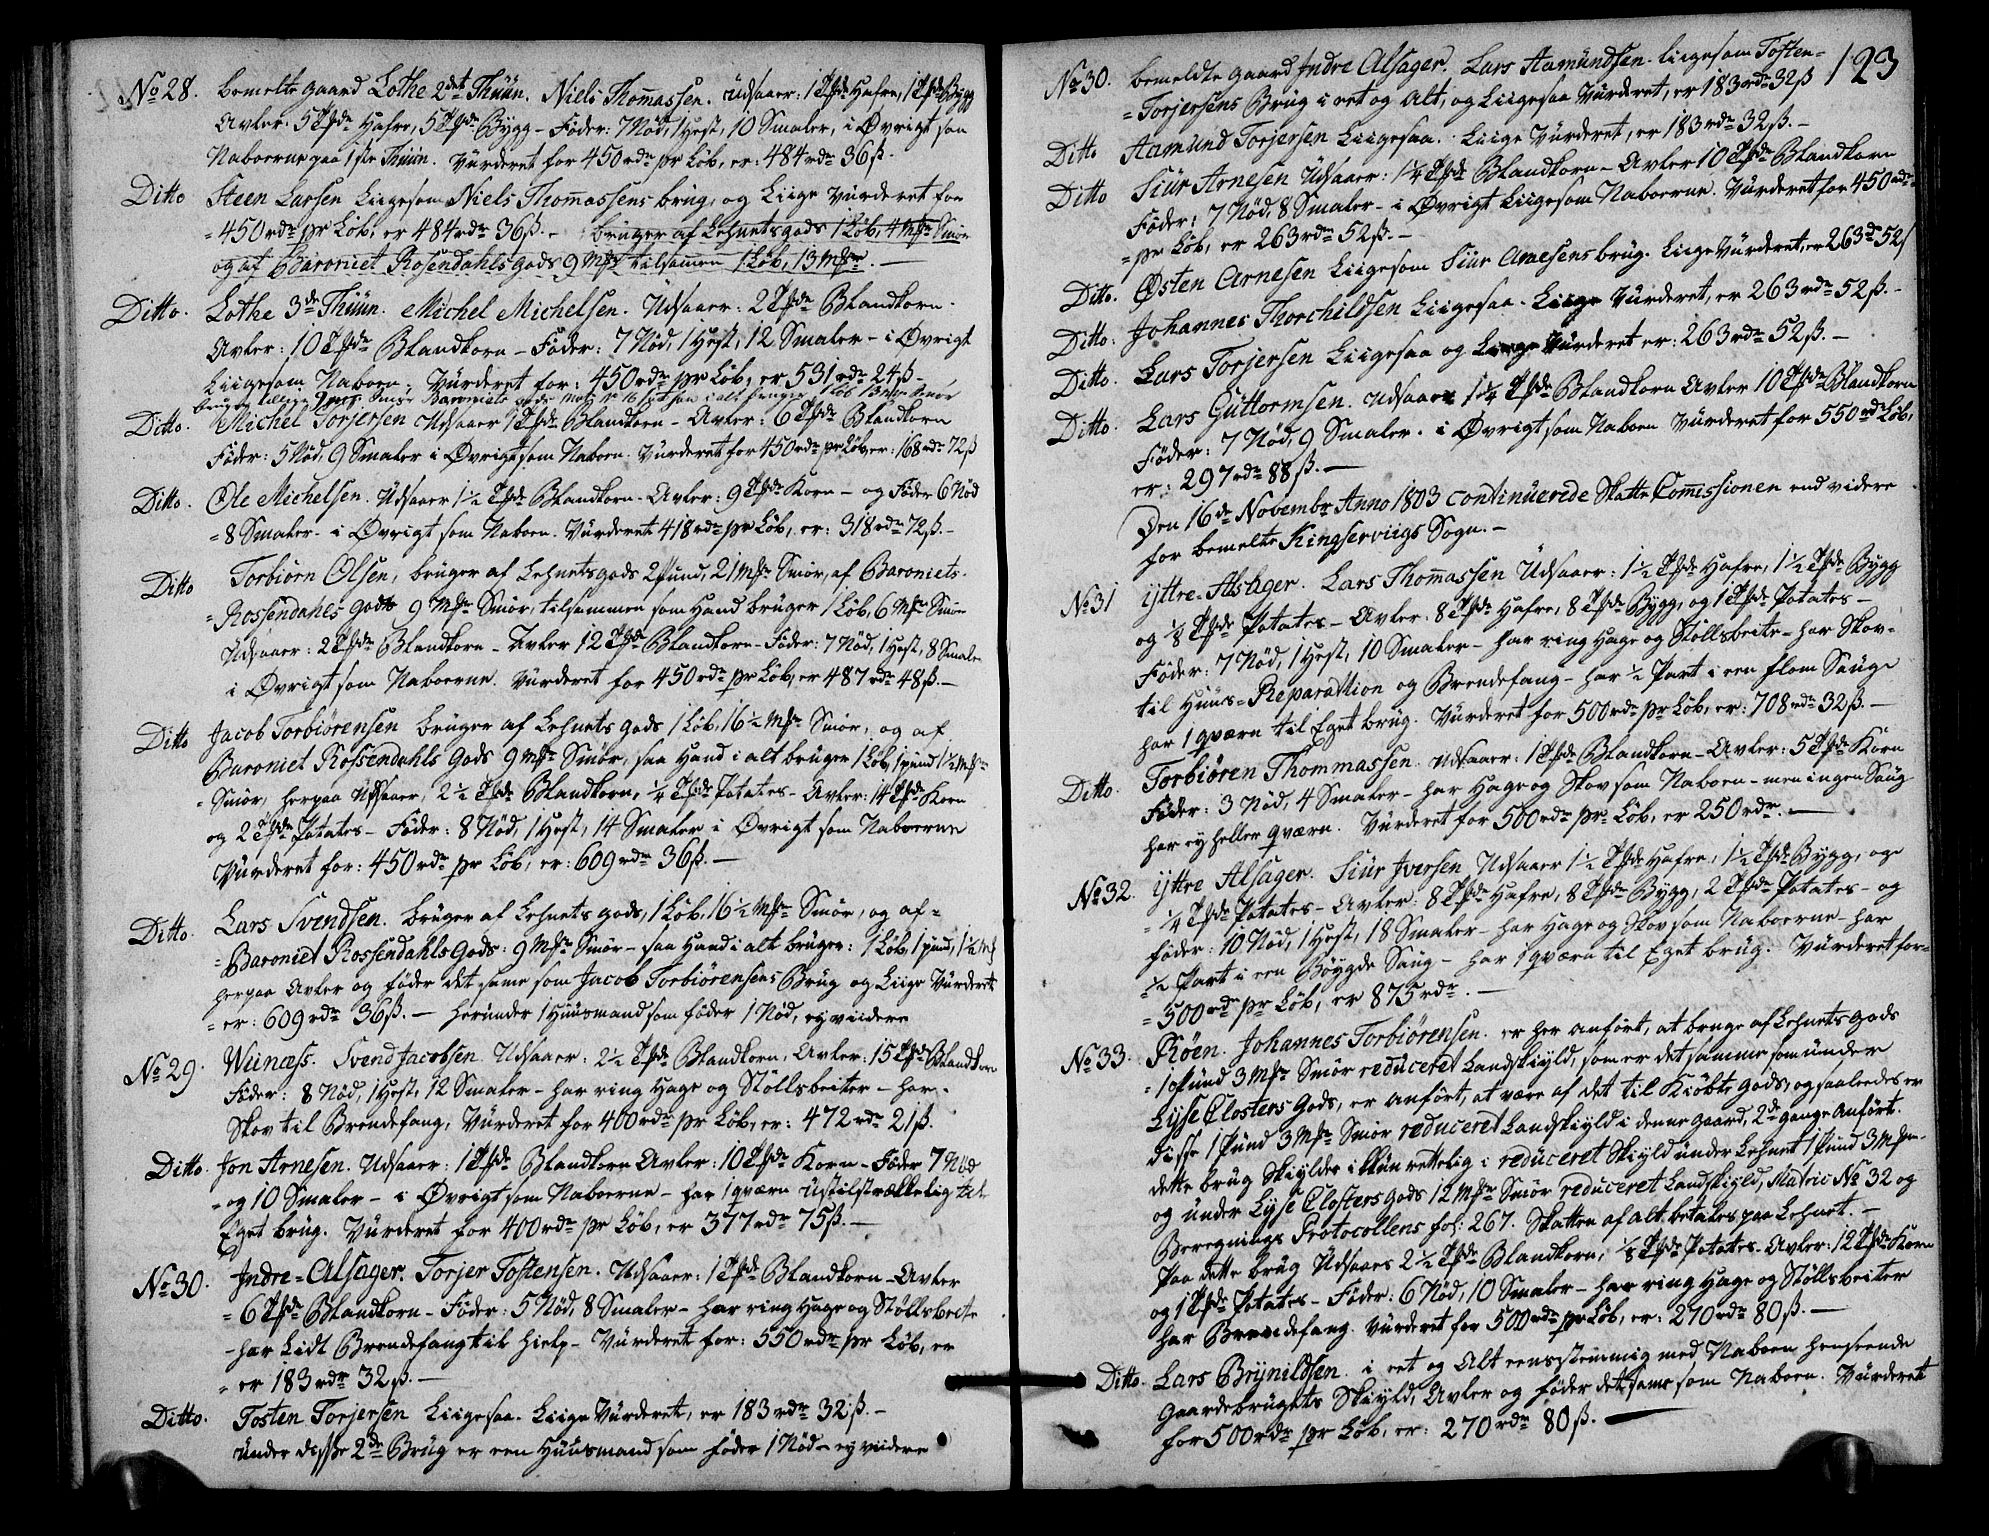 No 28. bemelte gaard Lothe 2det Thüün. Niels Thomassen. Udsaaer: 1 Tønde Hafre, 1 Tønde Bygg
Avler: 5 Tønder Hafre, 5 Tønder Bygg – Føder: 7 Nød, 1 Hest, 10 Smaler, i Øvrigt som
Naboerne paa 1ste Thüün. Vürderet for 450 rdr pr Løb, er: 484 rdr 36 ß.
Ditto Steen Larsen Liigesom Niels Thomassens brug, og Liige vürderet for
450 rdr pr Løb, er 484 rdr 36 ß. – bruger af Lehnets gods 1 Løb, 4 Mkr Smør
og af Baroniet Rosendahls gods 9 Mkr tilsamen 1 Løb, 13 Mkr. –
Ditto. Lothe 3de Thüün. Michel Michelsen. Udsaaer: 2 Tønder Blandkorn.
Avler: 10 Tønder Blandkorn – Føder: 7 Nød, 1 Hest, 12 Smaler – i Øvrigt
Liigesom Naboen. Vürderet for: 450 rdr pr Løb, er 531 rdr 24 ß. –
bruger tillige Smør Baroniets gods i alt bruger 1 Løb 13 Mkr Smør
Ditto. Michel Torjersen Udsaaer 1 Tønde Blandkorn – Avler: 6 Tønder Blandkorn
Føder: 5 Nød, 9 Smaler i Øvrigt som Naboen. Vurderet for 450 rdr pr Løb, er: 168 rdr 72 ß
Ditto. Ole Michelsen. Udsaaer 1½ Tønde Blandkorn. Avler: 9 Tønder Korn – og Føder 6 Nød
8 Smaler – i Øvrigt som Naboen. Vürderet 418 rdr pr Løb, er: 318 rdr 72 ß. –
Ditto Torbiørn Olsen, bruger af Lehnets gods 2 pund, 21 Mkr Smør, af Baroniets
Rossendahls gods 9 Mkr Smør, tilsammen som Hand brüger 1 Løb, 6 Mkr Smør
Udsaaer: 2 Tønder Blandkorn – Avler 12 Tønder Blandkorn – Føder: 7 Nød, 1 Hest, 8 Smaler
i Øvrigt som Naboerne. Vürderet for 450 rdr pr Løb, er 487 rdr 48 ß. –
Ditto Jacob Torbiørensen brüger af Lehnets gods 1 Løb, 16½ Mkr Smør, og af
Baroniet Rossendahls Gods 9 Mkr Smør, saa Hand i alt brüger 1 Løb, 1 pund 1½ Mkr
Smør, herpaa Udsaaer, 2½ Tønde Blandkorn, ¼ Tønde Potates – Avler: 14 Tønder Korn
og 2 Tønder Potates – Føder: 8 Nød, 1 Hest, 14 Smaler i Øvrigt som Naboerne
Vürderet for: 450 rdr pr Løb, er: 609 rdr 36 ß. –
Ditto. Lars Svendsen. brüger af Lehnets gods, 1 Løb, 16½ Mkr Smør, og af
Baroniet Rossendahls Gods: 9 Mkr Smør – saa Hand i alt brüger: 1 Løb, 1 pund, 1½ Mk
herpaa Avler og føder det same som Jacob Torbiørensens Brug og Liige Vürderet
er: 609 rdr 36 ß. – herunder 1 Hüüsmand som føder 1 Nød, ey viidere
No 29. Weinæss. Svend Jacobsen. Udsaaer: 2½ Tønde Blandkorn, Avler: 15 Tønder Blandkorn
Føder: 8 Nød, 1 Hest, 12 Smaler – har ring Hage og Støllsbeiter – har
Skov til Brendefang, Vürderet for 400 rdr pr Løb, er: 472 rdr 21 ß.
Ditto. Jon Arnesen. Udsaaer: 1 Tønde Blandkorn Avler: 10 Tønder Korn – Føder 7 Nød
og 10 Smaler – i Øvrigt som Naboerne – har 1 qværn utilstrækkelig til
Eget brug. Vürderet for 400 rdr pr Løb, er 377 rdr 75 ß. –
No 30. Indre-Alsager. Torjer Tostensen. Udsaaer: 1 Tønde Blandkorn – Avler
6 Tønder Blandkorn – Føder: 5 Nød, 8 Smaler – har ring Hage og Støllsbeite
har Lidt Brendefang til hielp – Vürderet for: 550 rdr pr Løb, er
er 183 rdr 32 ß. –
Ditto. Tosten Torjersen Liigesaa. Liige Vürderet, er 183 rdr 32 ß. –
ünder disse 2de Brüg er een Hüüsmand som føder 1 Nød – ey viidere
123
No 30. bemeldte gaard Indre Alsager. Lars Aamündsen. liigesom Tosten
Torjersens Brug i eet og Alt, og Liigesaa Vürderet, er 183 rdr 32 ß
Ditto Aamund Torjersen Liigesaa. Liige Vürderet, er 183 rdr 32 ß. –
Ditto Siür Arnesen Udsaaer: 1¼ Tønde Blandkorn – Avler 10 Tønder Blandkorn
Føder: 7 Nød, 8 Smaler – i Øvrigt Liigesom Naboerne. Vürderet for 450 rdr
pr Løb, er 263 rdr 52 ß. –
Ditto. Østen Arnesen Liigesom Siür Arnesens brug. Liige Vürderet, er 263 rd 52 ß
Ditto. Johannes Thorchildsen Liigesaa. Liige Vürderet, er 263 rdr 52 ß. –
Ditto. Lars Torjersen Liigesaa og Liige Vürderet er: 263 rdr 52 ß. –
Ditto. Lars Güttormsen. Udsaaer 1¼ Tønde Blandkorn Avler 10 Tønder Blandkorn
Føder: 7 Nød, 9 Smaler. i Øvrigt som Naboen Vürderet for 550 rdr Løb,
er: 297 rdr 88 ß. –
Den 16de Novembr Anno 1803 continuerede Skatte Comissionen end videre
for bemelte Kingserviigs Sogn. –
No 31 Yttre-Alsager. Lars Thomassen Udsaaer: 1½ Tønde Hafre, 1½ Tønde Bygg
og ⅛ Tønde Potates – Avler: 8 Tønder Hafre, 8 Tønder Bygg, og 1 Tønde Potates –
Føder: 7 Nød, 1 Hest, 10 Smaler – har ring Hage og Støllsbeite – har Skov
til Hüüs-Reparattion og Brendefang – har ½ Part i een flom Sauge
har 1 qværn til Eget brug. Vürderet for 500 rdr pr Løb, er: 708 rdr 32 ß. –
Ditto. Torbiøren Thommassen. Udsaaer: 1 Tønde Blandkorn – Avler: 5 Tønder Korn
Føder: 3 Nød, 4 Smaler – har Hage og Skov som Naboen – men ingen Saug
har ey heller qværn. Vürderet for 500 rdr pr Løb, er 250 rdr. –
No 32. Yttre Alsager. Siür Iversen Udsaaer 1½ Tønde Hafre, 1½ Tønde Bygg, og
¼ Tønde Potates – Avler: 8 Tønder Hafre, 8 Tønder Bygg, 2 Tønder Potates – og
føder: 10 Nød, 1 Hest, 18 Smaler – har Hage og Skov som Naboerne – har
½ Part i een Bøygde Saug – har 1 qværn til Eget brüg. Vürderet for
500 rdr pr Løb, er 875 rdr. –
No 33. Røen. Johannes Torbiørensen. er her anført, at bruge af Lehnets gods
1 pünd 3 Mkr Smør reduceret Landskyld, som er det samme som ünder
Lyse Closters Gods, er anført, at være af det til Kiøbte gods, og saaledes er
disse 1 Pund 3 Mkr Smør reduceret Landskyld i denne gaard, 2de gange Anført.
dette brug Skylder ikkun rettelig i reduceret Skyld under Lehnet 1 Pund 3 Mkr
og under Lyse Closters Gods 12 Mkr Smør reduceret Landskyld, Matric No 32 og
Beregnings Protocollens fol: 267. Skatten af alt betales paa Lehnet. –
Paa dette brüg Udsaaes 2½ Tønde Blandkorn, ⅛ Tønde Potates. Avler: 12 Tønder Korn
og 1 Tønde Potates – Føder: 6 Nød, 10 Smaler – har ring Hage og Støllsbeiter
har Brendefang. Vürderet for 500 rdr pr Løb, er: 270 rdr 80 ß. –
Ditto. Lars Brynildsen. i eet og Alt eensstemmig med Naboen henseende
Gaardebrugets Skyld, Avler og føder det same som Naboen. Vürderet
for 500 rdr pr Løb, er: 270 rdr 80 ß. –